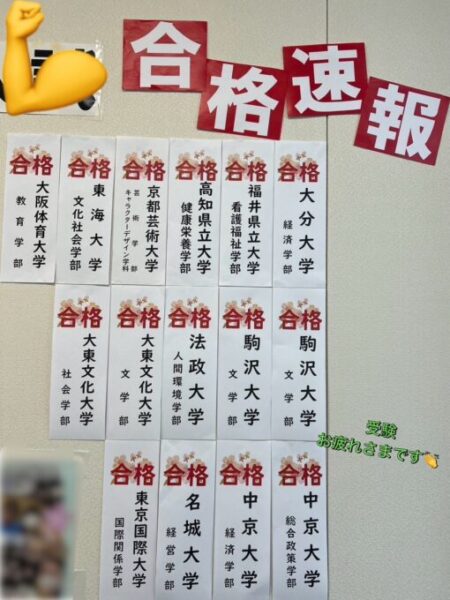 合格速報
合格
大分大学
経済学部
合格
福井県立大学
看護福祉学部
合格
高知県立大学
健康栄養学部
合格
京都芸術大学
芸術学部
キャラクターデザイン学科
合格
東海大学
文化社会学部
合格
大阪体育大学
教育学部
合格
駒沢大学
文学部
合格
駒沢大学
文学部
合格
法政大学
人間環境学部
合格
大東文化大学
文学部
合格
大東文化大学
社会学部
受験
お疲れさまです
合格
中京大学
総合政策学部
合格
中京大学
経済学部
合格
名城大学
経営学部
合格
東京国際大学
国際関係学部